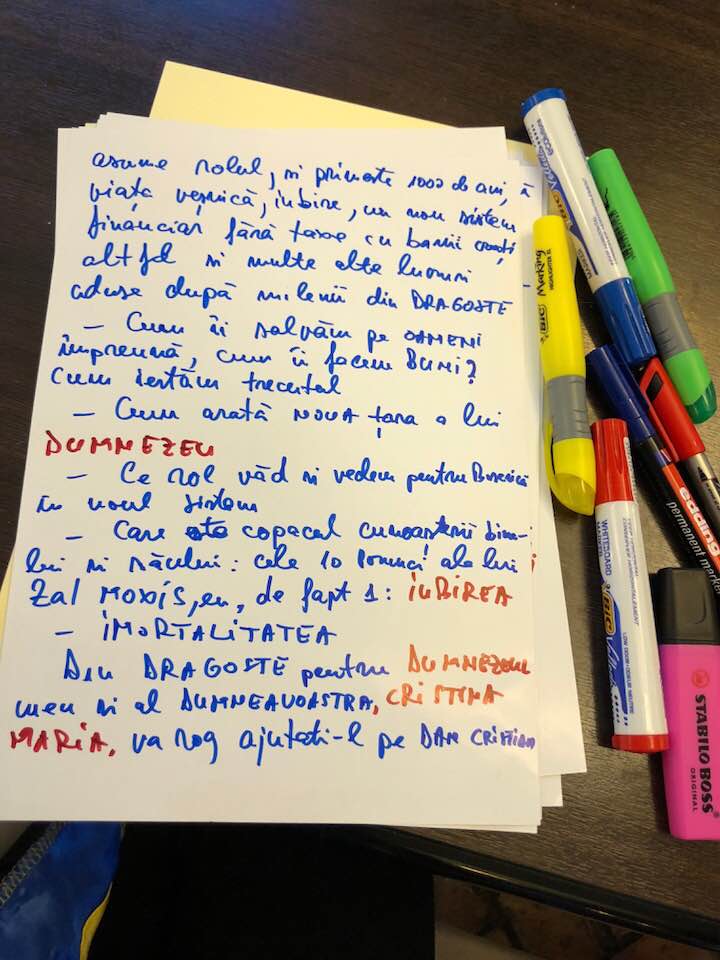 asume rolul, si primeste 1000 de ani, a
viața veșnică, iubire, un nou sistem
financiar fără taxe cu banii
altfel si multe alte lucruri
aduse după milenii din DRAGOSTE
- Cum îi salvăm pe OAMENI
împreună, cum îi facem BUNI?
Cum iertăm trecutul
- Cum arată NOUA țara a lui
DUMNEZEU
- Ce rol văd si vedem pentru Biserică
în noul sistem
- Care este copacul cunoasterii bine-
lui si răului: cele 10 Porunci ale lui
Zal MOXIS, eu, de fapt 1: IUBIREA
- IMORTALITATEA
Din DRAGOSTE pentru DUMNEZEUL
meu si al DUMNEAVOASTRA, CRISTINA
MARIA, va rog ajutati-l pe DAN CRISTIAN
BIC Marking
HIGHLIGHTER XL
ecolutions
BIC
WHITEBOARD
MARKER
BIC Velleda
edding
permanent marker
STABILO BOSS
ORIGINAL